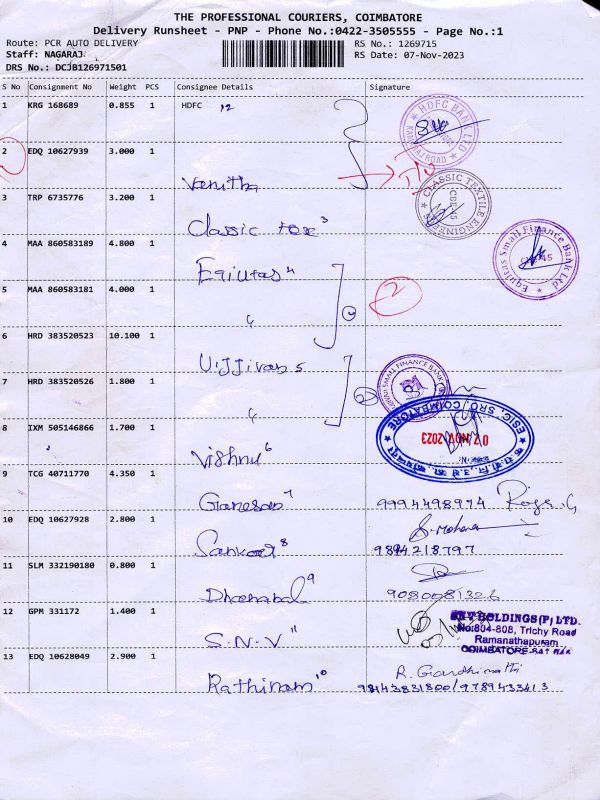 THE PROFESSIONAL COURIERS, COIMBATORE
Delivery Runsheet - PNP - Phone No.:0422-3505555 - Page No.:1
Route: PCR AUTO DELIVERY
RS No.: 1269715
Staff: NAGARAJ.
RS Date: 07-Nov-2023
DRS No.: DCJB126971501
S No Consignment No Weight PCS Consignee Details Signature
1 KRG 168689 0.855 1 HDFC 12
HDFC BANK LTD
2 EDQ 10627939 3.000 1
Vanitha
3 TRP 6735776 3.200 1
CLASSIC TEXTILE ENGINEERS
Classic Tex 3
4 MAA 860583189 4.800 1
Equitas Small Finance Bank Ltd
Equitas 4
5 MAA 860583181 4.000 1
2
2
6 HRD 383520523 10.100 1
Ujjivan 5
7 HRD 383520526 1.800 1
SMALL FINANCE BANK
2
8 IXM 505146866 1.700 1
ESIC, SRO, COIMBATORE
07 NOV 2023
Vishnu 6
9 TCG 40711770 4.350 1
Ganesan 7
9994498974
10 EDQ 10627928 2.800 1
Sankar 8
9894218797
11 SLM 332190180 0.800 1
Dhanabal 9
12 GPM 331172 1.400 1
S.N.V 11
HOLDINGS(P) LTD.
No:804-808, Trichy Road
Ramanathapuram
COIMBATORE
13 EDQ 10628049 2.900 1
Rathinam 10
R. Gandhimathi